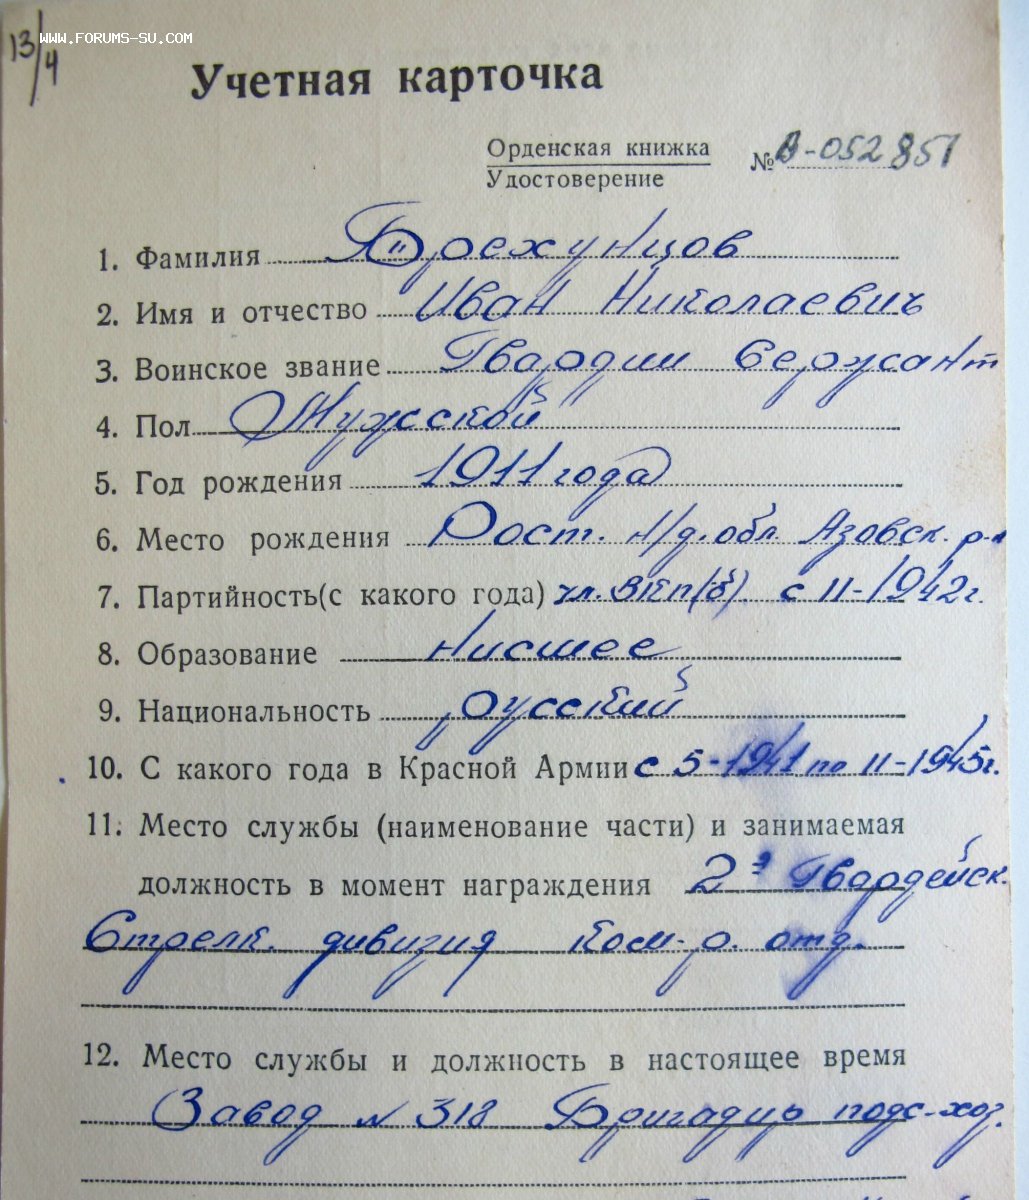 WWW.FORUMS-SU.COM
13/4
Учетная карточка
Орденская книжка
Удостоверение № В-052851
1. Фамилия Брехунцов
2. Имя и отчество Иван Николаевич
3. Воинское звание Гвардии Сержант
4. Пол Мужской
5. Год рождения 1911 года
6. Место рождения Рост. н/д. обл. Азовск. р-н
7. Партийность(с какого года) чл. ВКП(б) с II-1942г.
8. Образование Нисшее
9. Национальность русский
10. С какого года в Красной Армии с 5-1941 по 11-1945г.
11. Место службы (наименование части) и занимаемая
должность в момент награждения 2я Гвардейск.
Стрелк. дивизия Ком-р. отд.
12. Место службы и должность в настоящее время
Завод № 318 Бригадир подс-хоз.